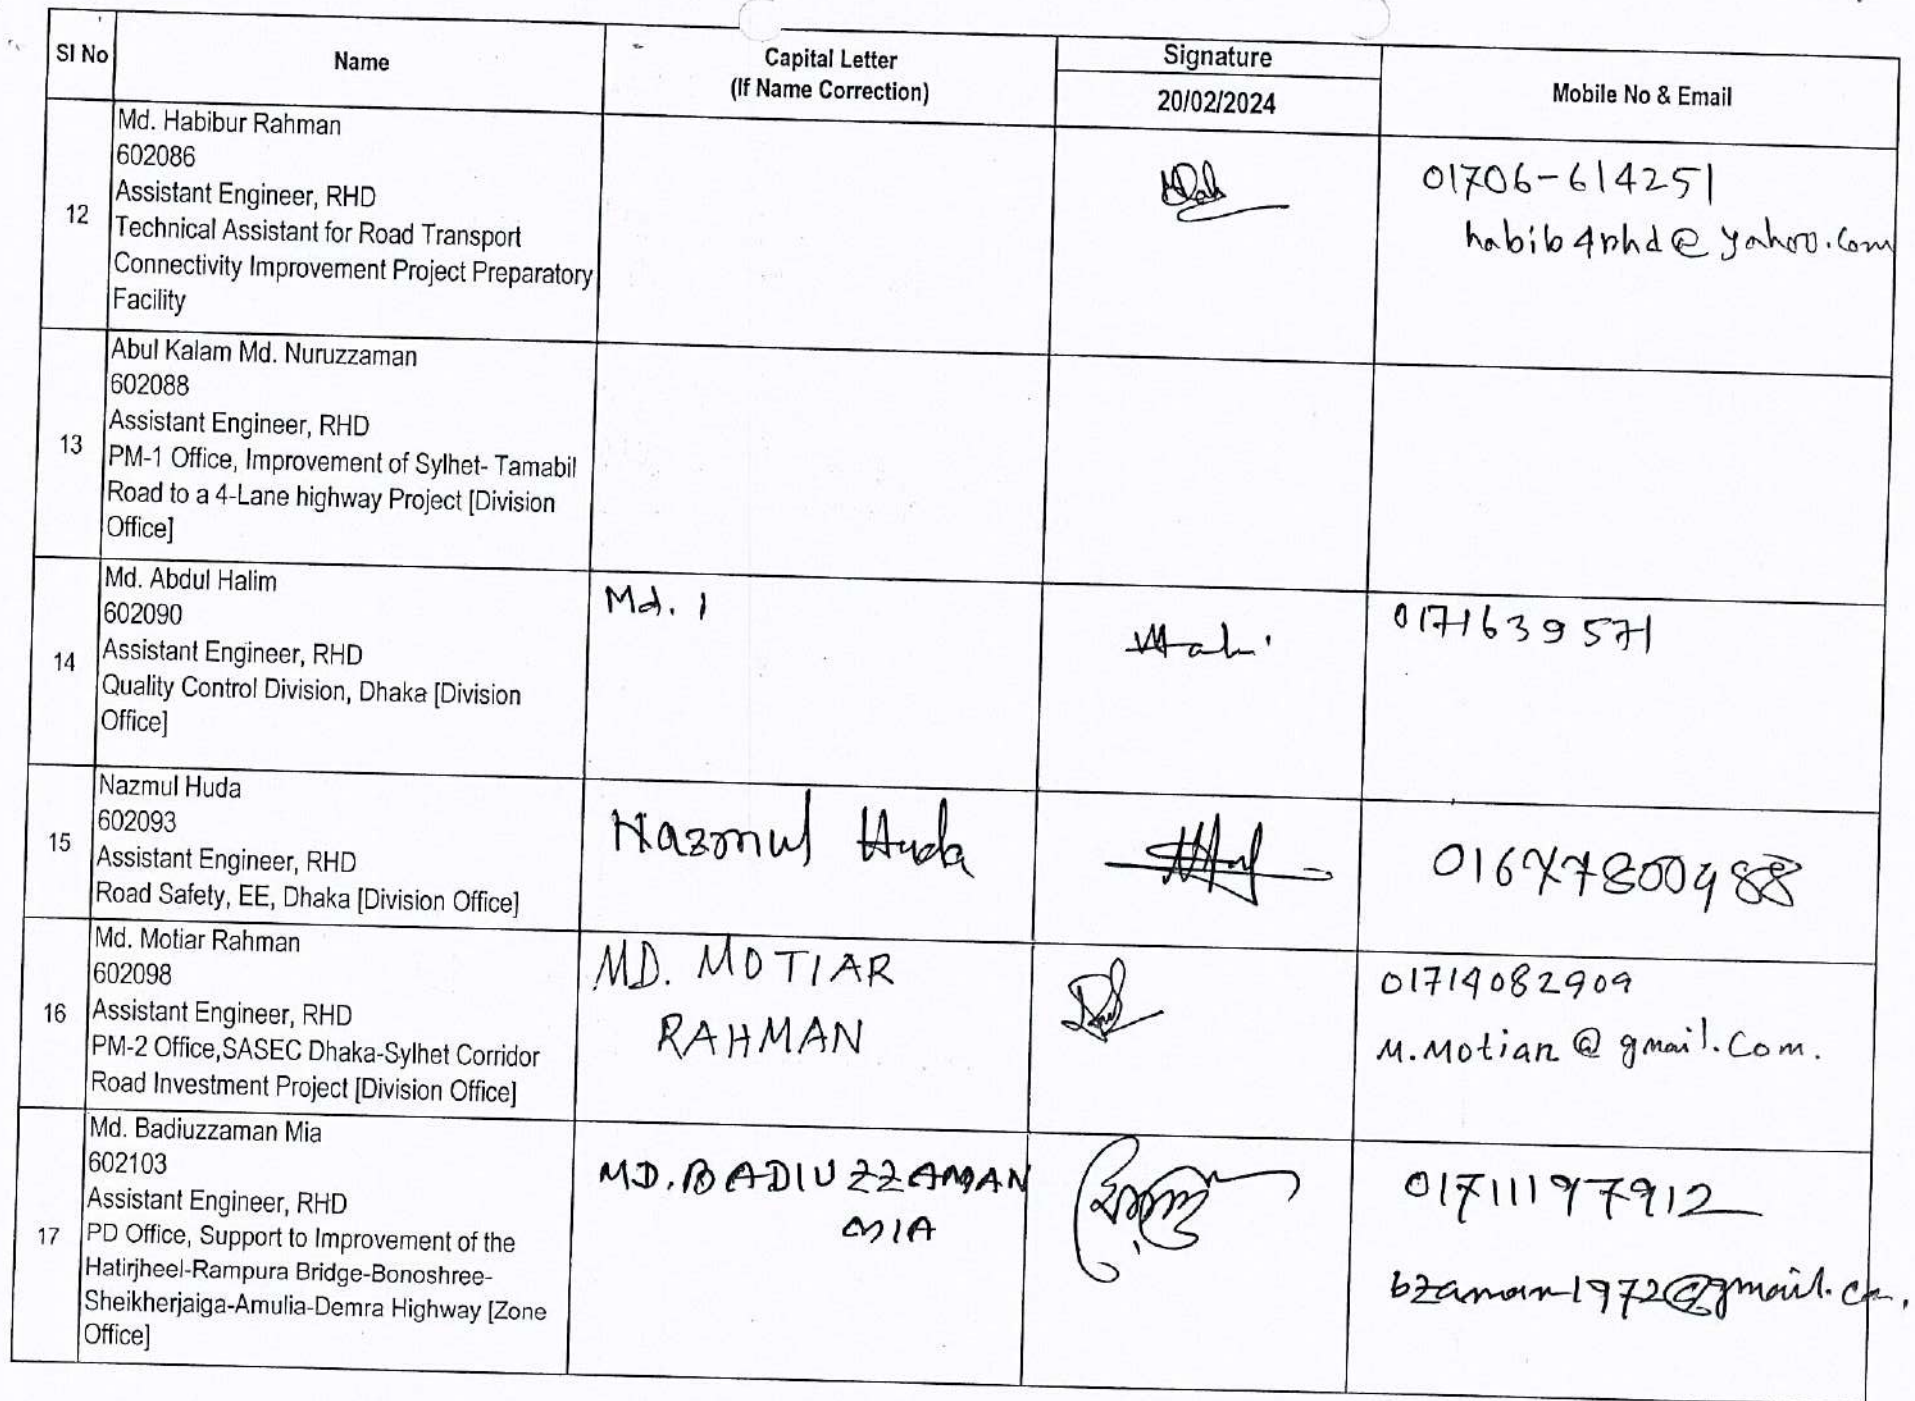 Sl No
Name
Capital Letter
(If Name Correction)
Signature
20/02/2024
Mobile No & Email
12
Md. Habibur Rahman
602086
Assistant Engineer, RHD
Technical Assistant for Road Transport
Connectivity Improvement Project Preparatory
Facility
01706-614251
habib4rhd@yahoo.com
13
Abul Kalam Md. Nuruzzaman
602088
Assistant Engineer, RHD
PM-1 Office, Improvement of Sylhet- Tamabil
Road to a 4-Lane highway Project [Division
Office]
14
Md. Abdul Halim
602090
Assistant Engineer, RHD
Quality Control Division, Dhaka [Division
Office]
Md. 1
0171639571
15
Nazmul Huda
602093
Assistant Engineer, RHD
Road Safety, EE, Dhaka [Division Office]
Nazmul Huda
01677800988
16
Md. Motiar Rahman
602098
Assistant Engineer, RHD
PM-2 Office,SASEC Dhaka-Sylhet Corridor
Road Investment Project [Division Office]
MD. MOTIAR
RAHMAN
01714082909
M.Motiar@gmail.Com.
17
Md. Badiuzzaman Mia
602103
Assistant Engineer, RHD
PD Office, Support to Improvement of the
Hatirjheel-Rampura Bridge-Bonoshree-
Sheikherjaiga-Amulia-Demra Highway [Zone
Office]
MD. BADIUZZAMAN
MIA
01711197912